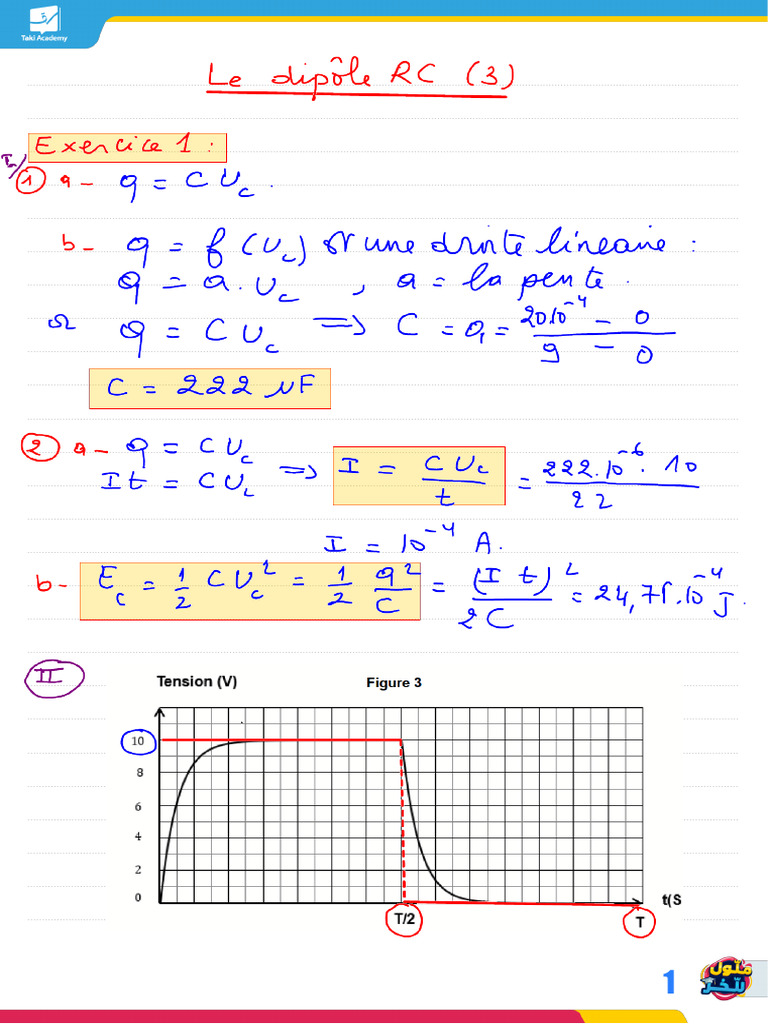 Taki Academy
Le dipôle RC (3)
Exercice 1 :
I/
① a- q = C Uc .
b- q = f (Uc) est une droite lineaire :
q = a . Uc , a = la pente .
or q = C Uc => C = a = (20.10⁻⁴ - 0) / (9 - 0)
C = 222 µF
② a- q = C Uc
It = C Uc => I = C Uc / t = 222.10⁻⁶ . 10 / 22
I = 10⁻⁴ A.
b- Ec = 1/2 C Uc² = 1/2 q²/C = (I t)² / 2C = 24,75.10⁻⁴ J.
II
Tension (V) Figure 3
10
8
6
4
2
0
t(S
T/2 T
1